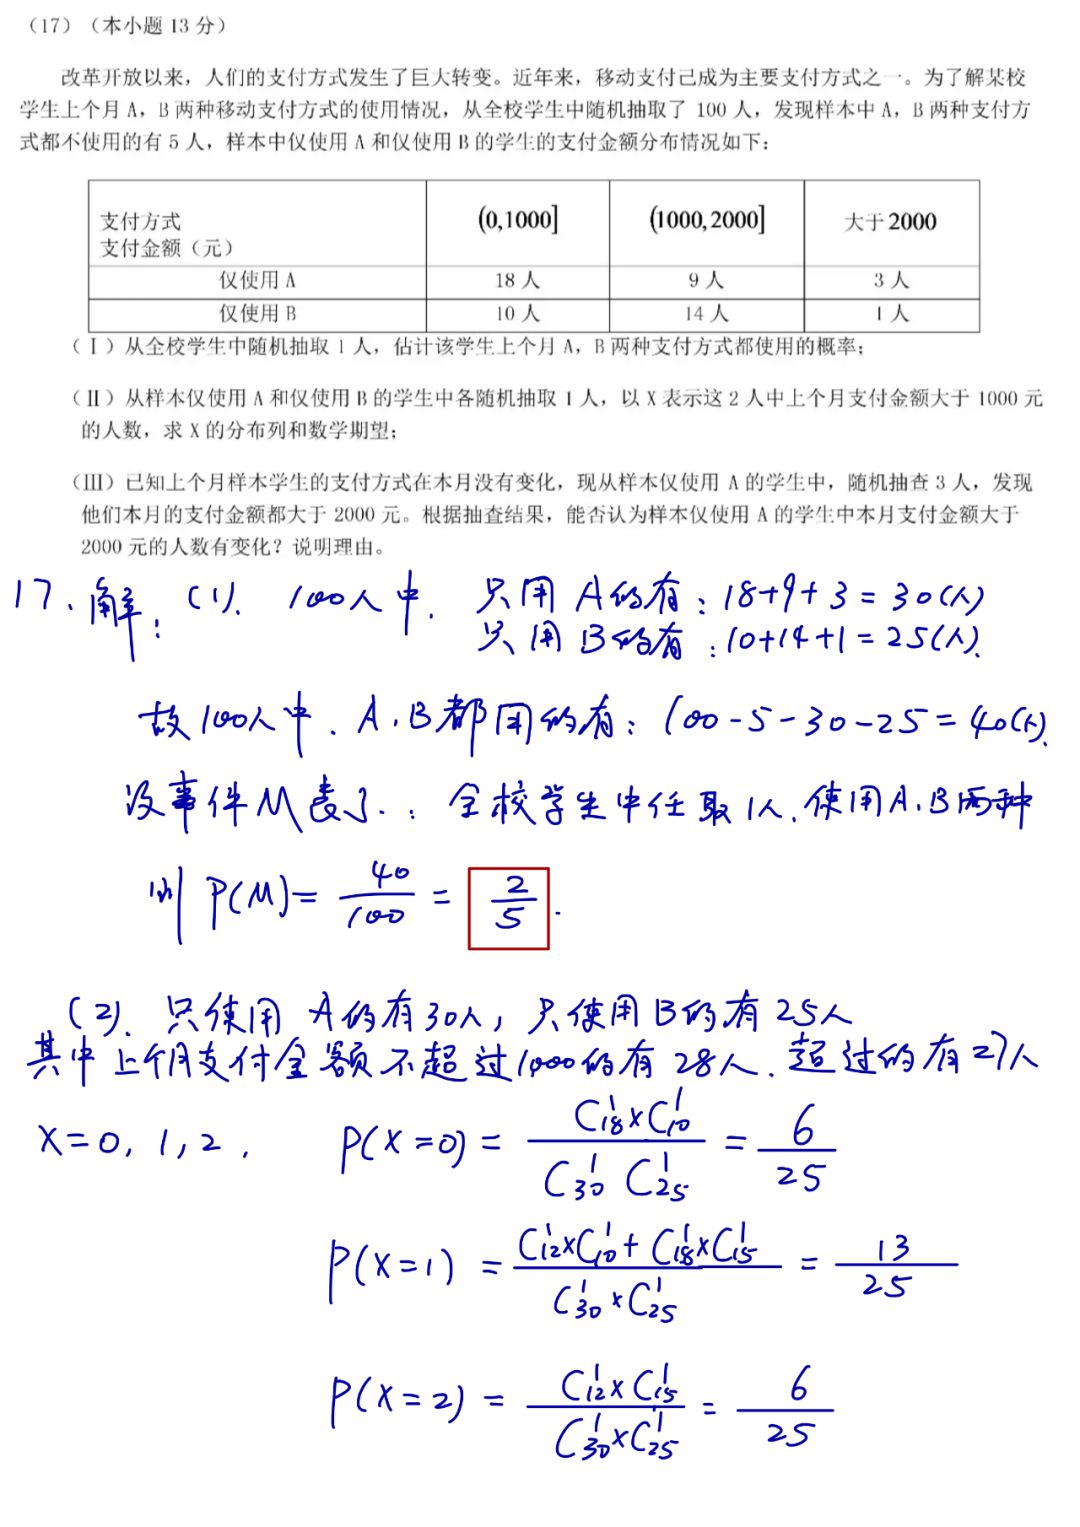 （17）（本小题 13 分）
改革开放以来，人们的支付方式发生了巨大转变。近年来，移动支付已成为主要支付方式之一。为了解某校
学生上个月 A，B 两种移动支付方式的使用情况，从全校学生中随机抽取了 100 人，发现样本中 A，B 两种支付方
式都不使用的有 5 人，样本中仅使用 A 和仅使用 B 的学生的支付金额分布情况如下：
支付方式
支付金额（元） (0,1000] (1000,2000] 大于 2000
仅使用 A 18 人 9 人 3 人
仅使用 B 10 人 14 人 1 人
（Ⅰ）从全校学生中随机抽取 1 人，估计该学生上个月 A，B 两种支付方式都使用的概率；
（Ⅱ）从样本仅使用 A 和仅使用 B 的学生中各随机抽取 1 人，以 X 表示这 2 人中上个月支付金额大于 1000 元
的人数，求 X 的分布列和数学期望；
（Ⅲ）已知上个月样本学生的支付方式在本月没有变化，现从样本仅使用 A 的学生中，随机抽查 3 人，发现
他们本月的支付金额都大于 2000 元。根据抽查结果，能否认为样本仅使用 A 的学生中本月支付金额大于
2000 元的人数有变化？说明理由。
17. 解：(1). 100人中. 只用 A的有：18+9+3=30(人)
只用 B的有：10+14+1=25(人).
故100人中. A.B都用的有：100-5-30-25=40(人).
设事件M表示：全校学生中任取1人.使用A.B两种
则 P(M)= 40/100 = 2/5.
(2). 只使用 A的有30人，只使用B的有25人
其中上个月支付金额不超过1000的有28人.超过的有27人
X=0, 1, 2. P(X=0) = C¹₁₈×C¹₁₀ / C¹₃₀ C¹₂₅ = 6/25
P(X=1) = C¹₁₂×C¹₁₀+C¹₁₈×C¹₁₅ / C¹₃₀×C¹₂₅ = 13/25
P(X=2) = C¹₁₂×C¹₁₅ / C¹₃₀×C¹₂₅ = 6/25